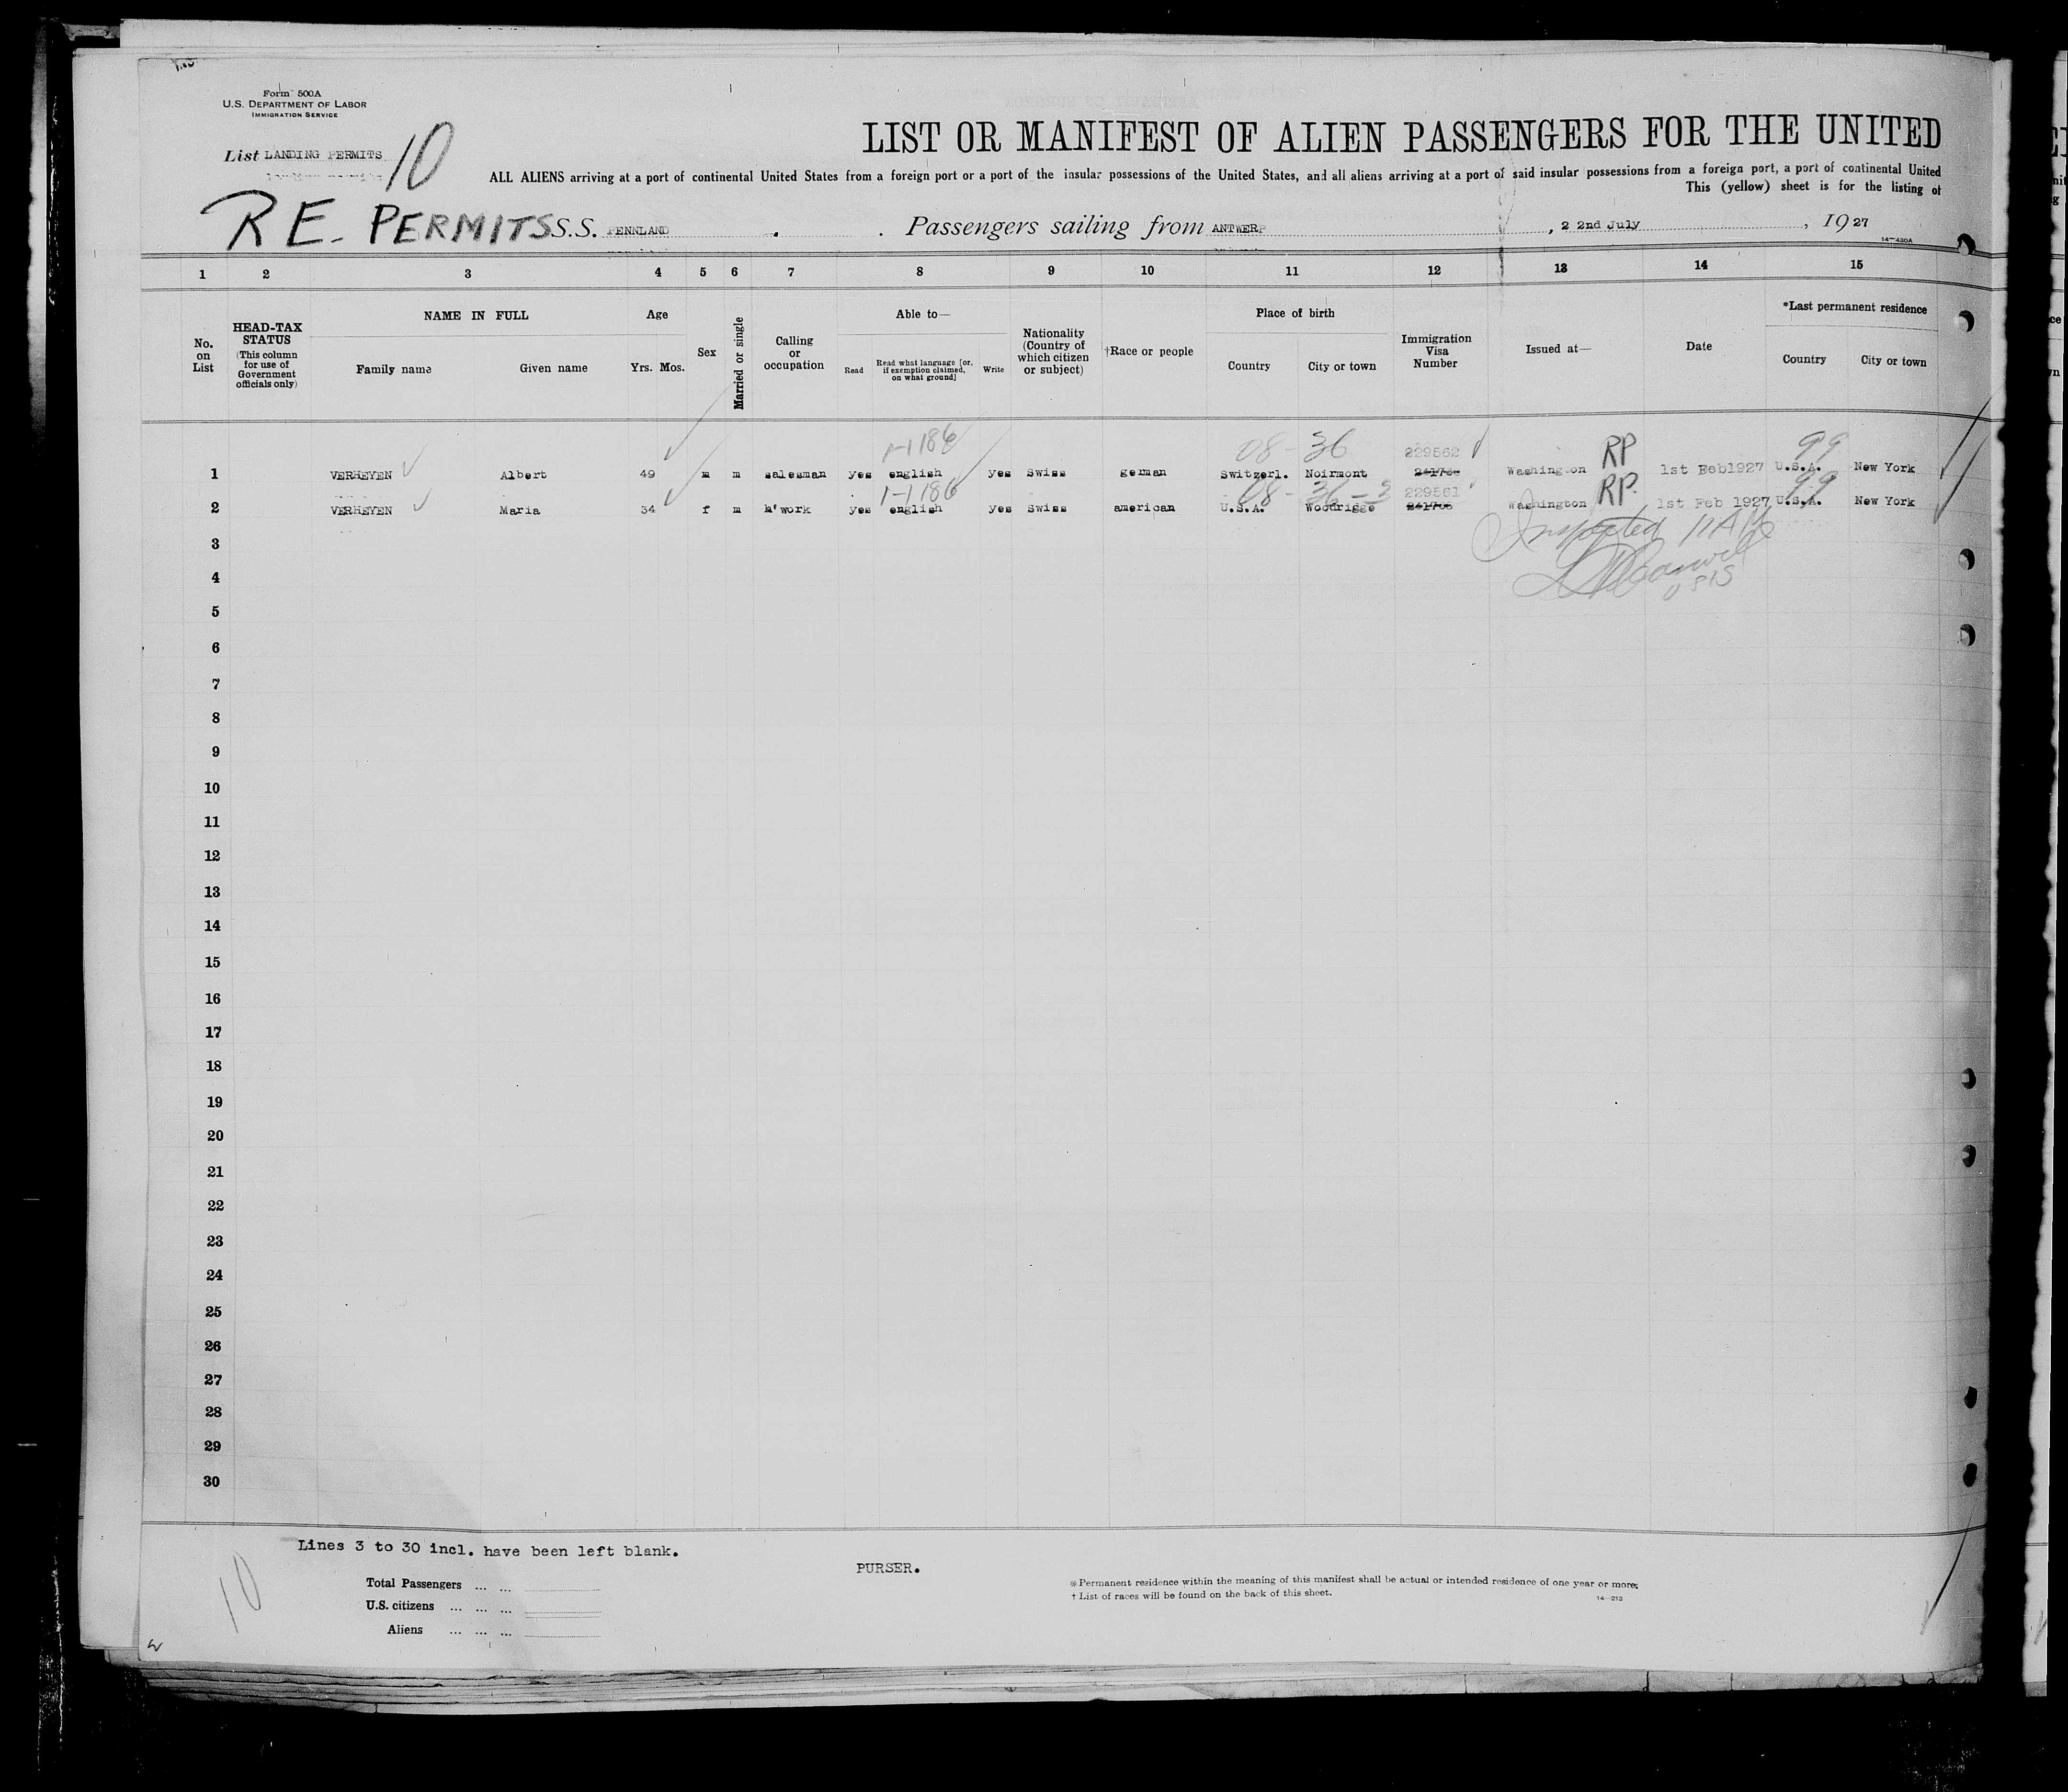 Form 500A
U.S. DEPARTMENT OF LABOR
IMMIGRATION SERVICE
List LANDING PERMITS 10
LIST OR MANIFEST OF ALIEN PASSENGERS FOR THE UNITED
ALL ALIENS arriving at a port of continental United States from a foreign port or a port of the insular possessions of the United States, and all aliens arriving at a port of said insular possessions from a foreign port, a port of continental United
This (yellow) sheet is for the listing of
RE. PERMITS S.S. PENNLAND Passengers sailing from ANTWERP, 2 2nd July, 1927
14—430A
1 2 3 4 5 6 7 8 9 10 11 12 13 14 15
No. on List
HEAD-TAX STATUS (This column for use of Government officials only)
NAME IN FULL
Family name Given name
Age
Yrs. Mos.
Sex
Married or single
Calling or occupation
Able to—
Read Read what language [or, if exemption claimed, on what ground] Write
Nationality (Country of which citizen or subject)
†Race or people
Place of birth
Country City or town
Immigration Visa Number
Issued at—
Date
*Last permanent residence
Country City or town
1-1186 08-36 229562 RP 99
1 VERHEYEN Albert 49 m m salesman yes english yes Swiss german Switzerl. Noirmont Washington 1st Feb1927 U.S.A. New York
1-1186 08-36-3 229561 RP. 99
2 VERHEYEN Maria 34 f m h'work yes english yes Swiss american U.S.A. Woodrigge Washington 1st Feb 1927 U.S.A. New York
Inspected
3
4
5
6
7
8
9
10
11
12
13
14
15
16
17
18
19
20
21
22
23
24
25
26
27
28
29
30
Lines 3 to 30 incl. have been left blank.
PURSER.
10
Total Passengers ... ...
U.S. citizens ... ... ...
Aliens ... ... ...
*Permanent residence within the meaning of this manifest shall be actual or intended residence of one year or more.
† List of races will be found on the back of this sheet.
14—213